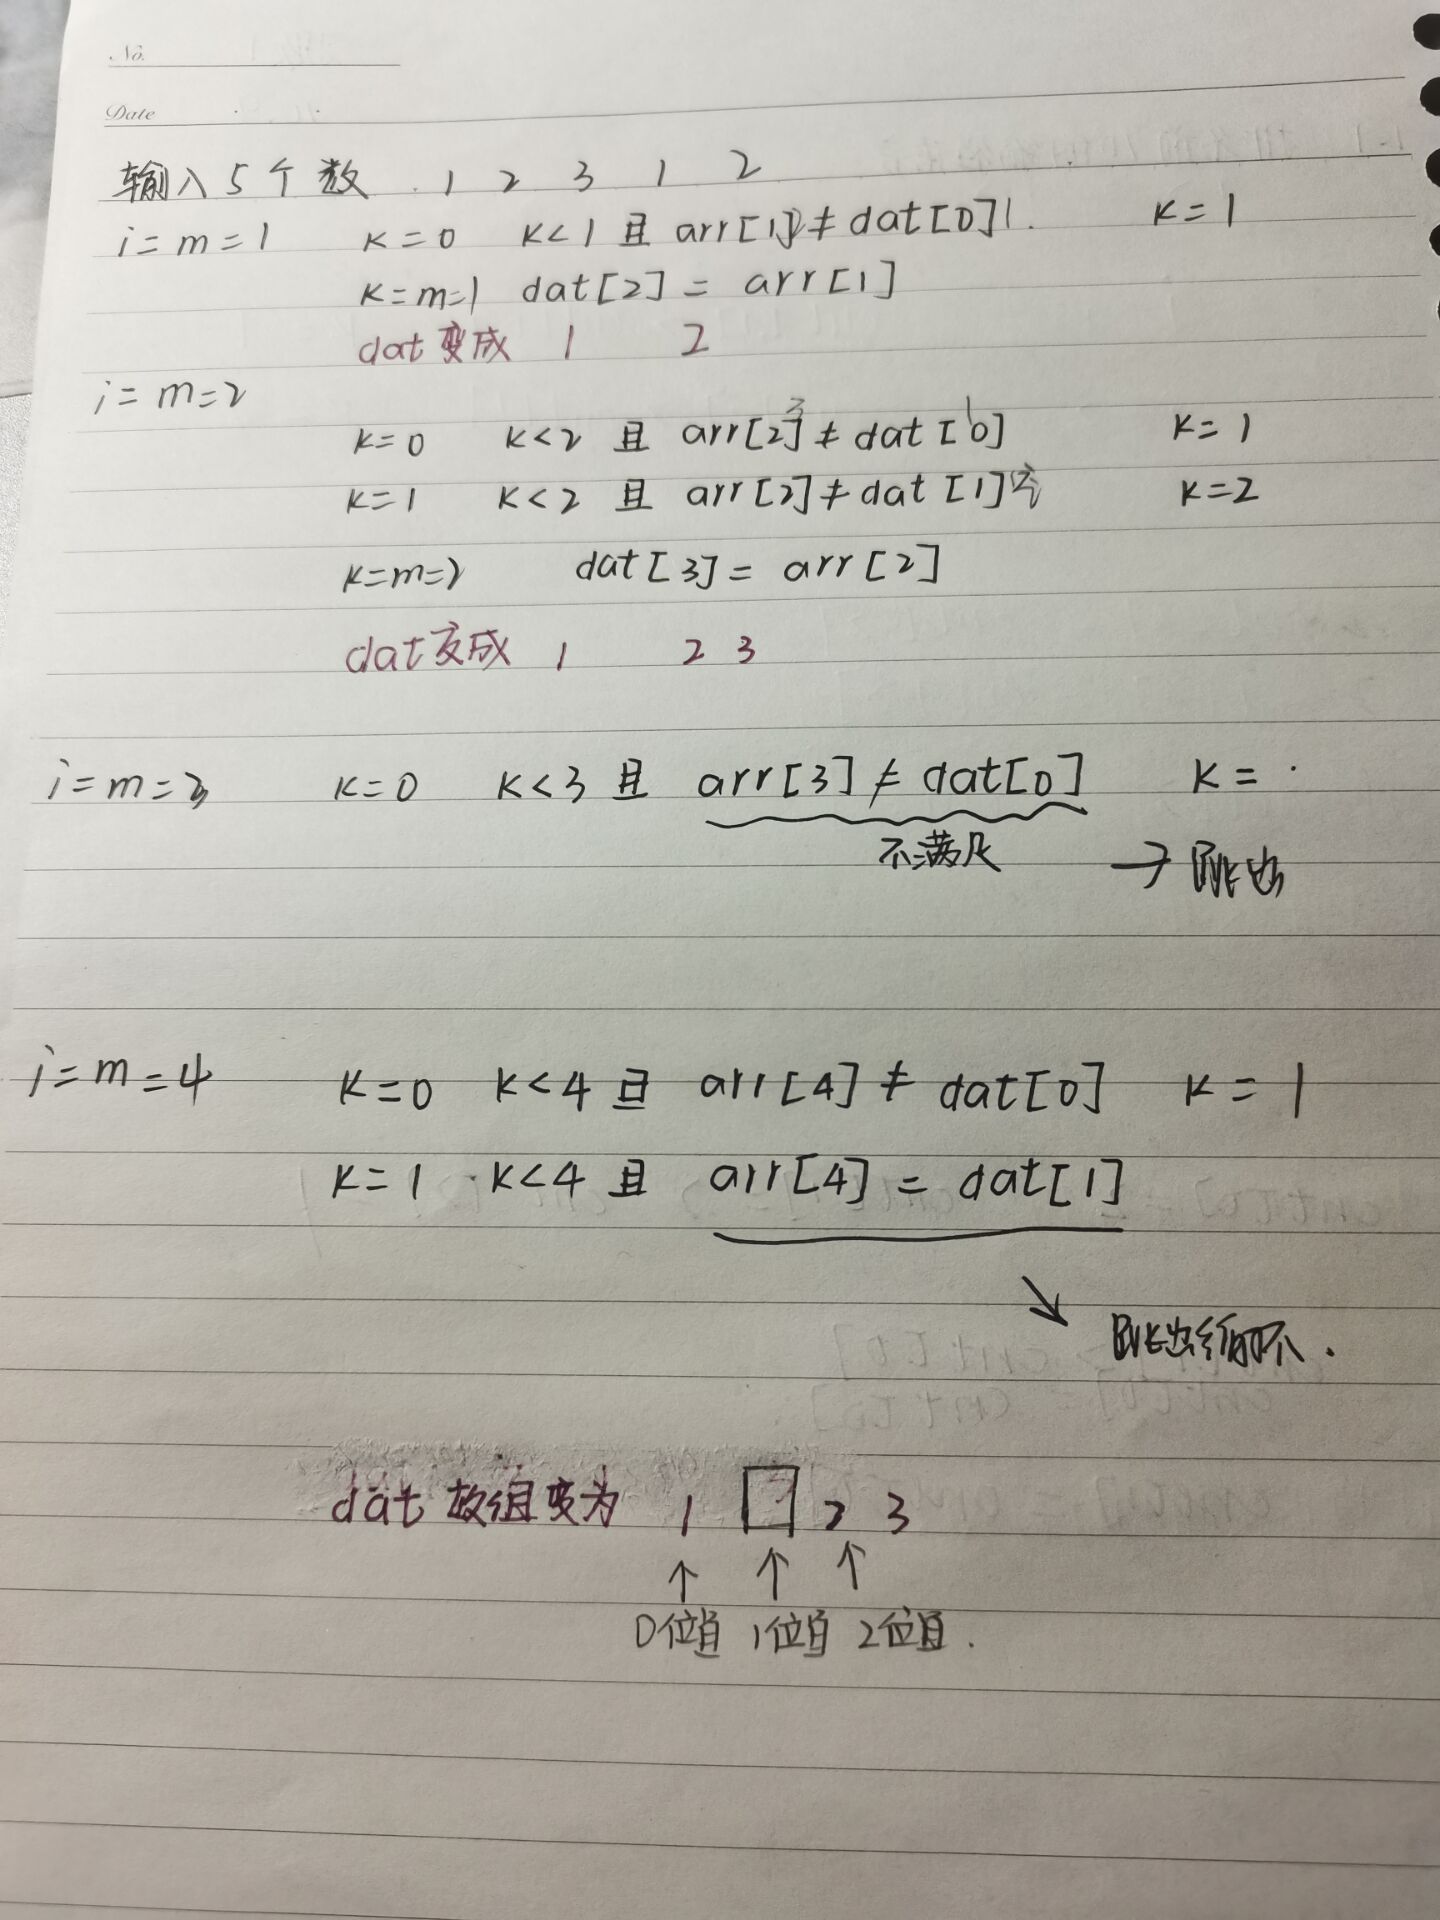 No.
Date
输入5个数 1 2 3 1 2
i=m=1 k=0 k<1 且 arr[1]2≠dat[0]1. k=1
k=m=1 dat[2] = arr[1]
dat变成 1 2
i=m=2
k=0 k<2 且 arr[2]3≠dat[0]1 k=1
k=1 k<2 且 arr[2]≠dat[1]空 k=2
k=m=2 dat[3] = arr[2]
dat变成 1 2 3
i=m=3 k=0 k<3 且 arr[3]≠dat[0] k=
不满足 → 跳出
i=m=4 k=0 k<4 且 arr[4]≠dat[0] k=1
k=1 k<4 且 arr[4] = dat[1]
↘ 跳出循环.
dat数组变为 1 □ 2 3
↑ ↑ ↑
0位置 1位置 2位置.